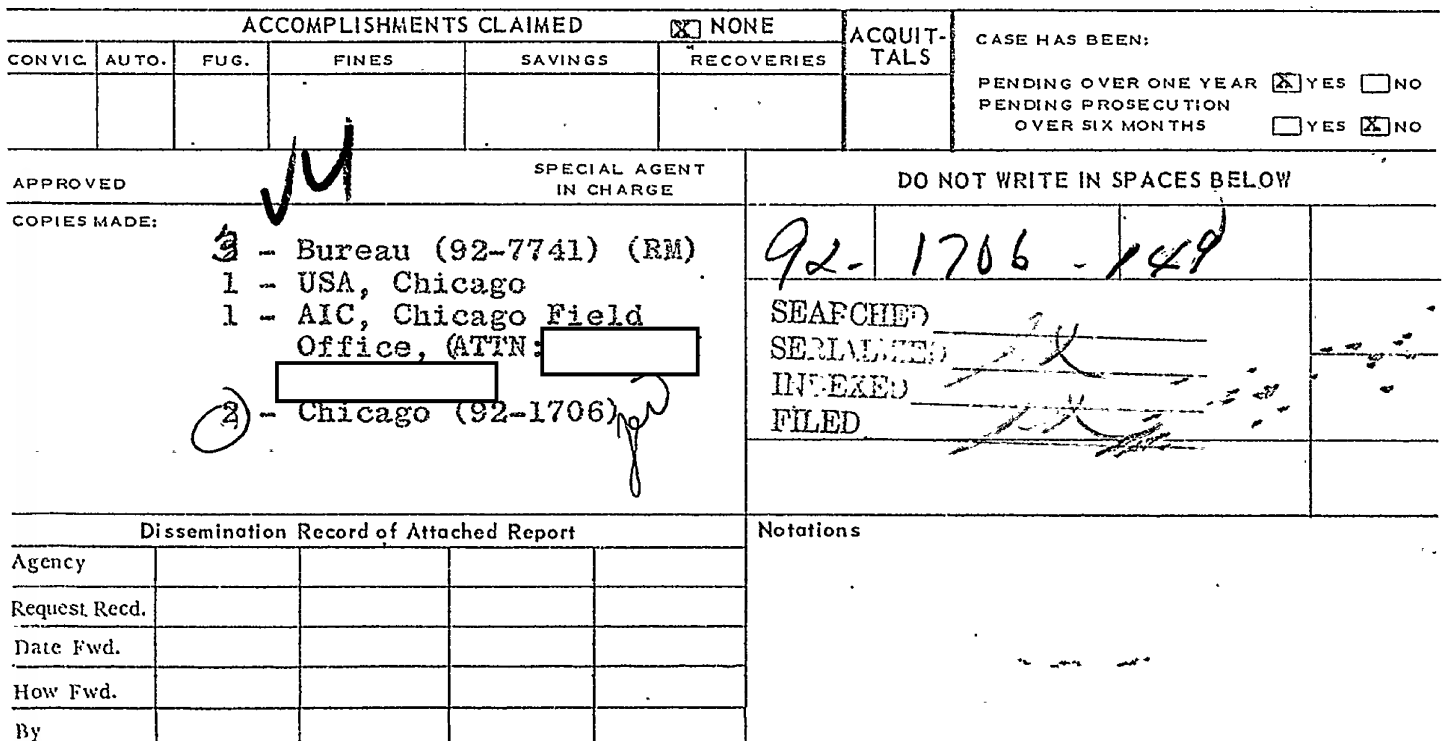 ACCOMPLISHMENTS CLAIMED [X] NONE
ACQUIT-
TALS
CASE HAS BEEN:
CONVIC. AUTO. FUG. FINES SAVINGS RECOVERIES
PENDING OVER ONE YEAR [X] YES [ ] NO
PENDING PROSECUTION
OVER SIX MONTHS [ ] YES [X] NO
APPROVED
SPECIAL AGENT
IN CHARGE
DO NOT WRITE IN SPACES BELOW
COPIES MADE:
3 - Bureau (92-7741) (RM)
1 - USA, Chicago
1 - AIC, Chicago Field
Office, (ATTN:
2 - Chicago (92-1706)
92- 1706 - 149
SEARCHED
SERIALIZED
INDEXED
FILED
Dissemination Record of Attached Report
Notations
Agency
Request Recd.
Date Fwd.
How Fwd.
By